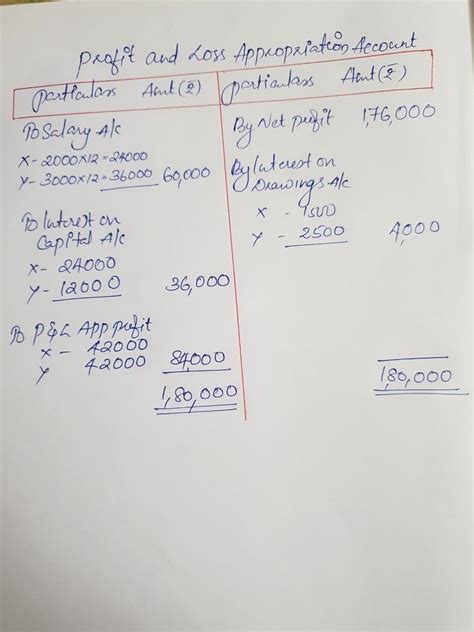 Profit and Loss Appropriation Account
Particulars Amt (₹)
To Salary A/c
X - 2000x12 = 24000
Y - 3000x12 = 36000 60,000
To Interest on
Capital A/c
X - 24000
Y - 12000 36,000
To P&L App profit
X - 42000
Y 42000 84,000
1,80,000
Particulars Amt (₹)
By Net profit 1,76,000
By Interest on
Drawings A/c
X - 1500
Y - 2500 4,000
1,80,000